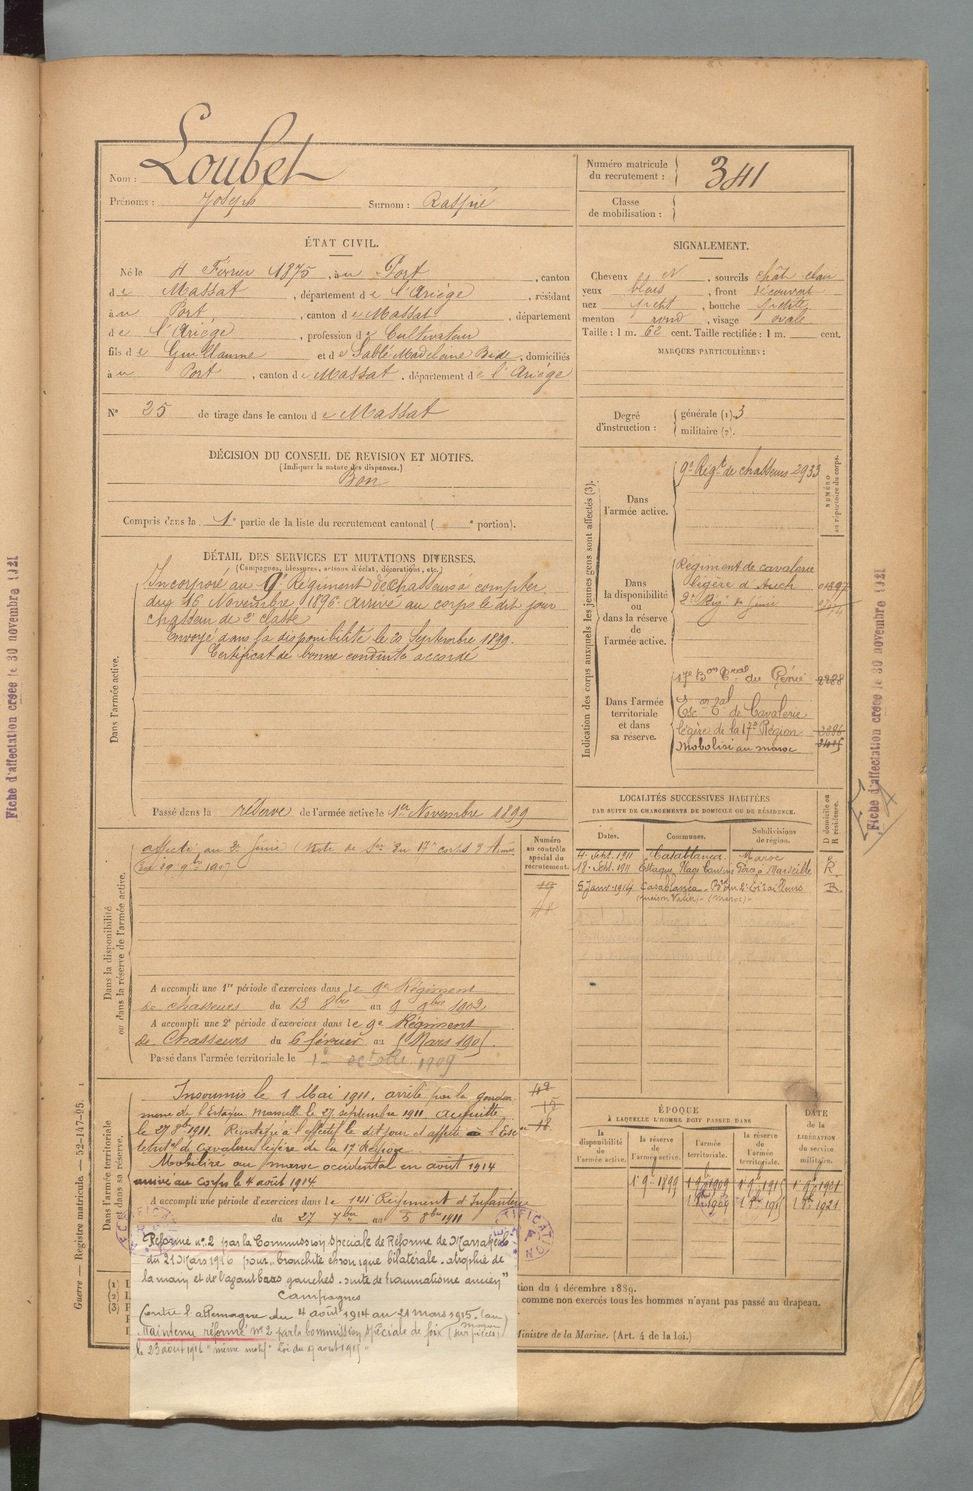 Nom : Loubet
Prénoms : Joseph Surnom : Raspié
ÉTAT CIVIL.
Né le 4 Février 1875, à u Port, canton
d e Massat, département d e l'Ariége, résidant
à u Port, canton d e Massat, département
d e l'Ariége, profession d e Cultivateur
fils d e Guillaume et d e Sablé Madeleine Bède, domiciliés
à u Port, canton d e Massat, département d e l'Ariége
N° 25 de tirage dans le canton d e Massat
DÉCISION DU CONSEIL DE REVISION ET MOTIFS.
(Indiquer la nature des dispenses.)
Bon
Compris dans la 1e partie de la liste du recrutement cantonal ( e portion).
DÉTAIL DES SERVICES ET MUTATIONS DIVERSES.
(Campagnes, blessures, actions d'éclat, décorations, etc.)
Dans l'armée active.
Incorporé au 9e Régiment de Chasseurs à compter
du 16 Novembre 1896. arrivé au corps le dit jour
chasseur de 2e classe
Envoyé dans la disponibilité le 20 Septembre 1899.
Certificat de bonne conduite accordé
Passé dans la réserve de l'armée active le 1er Novembre 1899
Dans la disponibilité
ou dans la réserve de l'armée active.
Numéro
au contrôle
spécial du
recrutement.
affecté au 2e Génie
A accompli une 1re période d'exercices dans le 9e Régiment
de chasseurs du 13 8bre au 9 9bre 1902
A accompli une 2e période d'exercices dans le 9e Régiment
de Chasseurs du 6 février au 5 Mars 1905.
Passé dans l'armée territoriale le 1er octobre 1909
Dans l'armée territoriale
et dans sa réserve.
Insoumis le 1 Mai 1911, arrêté par la gendar
merie de l'Estaque Marseille le 27 septembre 1911 acquitté
le 27 8bre 1911. Réintégré à l'effectif le dit jour et affecté à l'Esc
territal de Cavalerie légère de la 17e Région
Mobilisé au maroc occidental en août 1914
arrivé au corps le 4 août 1914
A accompli une période d'exercices dans le 141 Régiment d'Infanterie
du 27 7bre au 5 8bre 1911
Réforme n° 2 par la Commission Spéciale de Réforme de Marrakech
du 21 Mars 1916 pour "bronchite chronique bilatérale - atrophie de
la main et de l'avant bras gauches - suite de traumatisme ancien"
Campagnes
Contre l'allemagne du 4 août 1914 au 21 mars 1915 (au
maroc
Maintenu réformé n° 2 par la Commission Spéciale de foix (sur pièces)
le 23 août 1916 "même motif" Loi du 17 août 1915
Numéro matricule
du recrutement : 341
Classe
de mobilisation :
SIGNALEMENT.
Cheveux et sourcils chât. clair
yeux bleus, front découvert
nez petit, bouche petite
menton rond, visage ovale
Taille : 1 m. 62 cent. Taille rectifiée : 1 m. cent.
MARQUES PARTICULIÈRES :
Degré
d'instruction :
générale (1). 3
militaire (2).
Indication des corps auxquels les jeunes gens sont affectés (3).
NUMÉRO
au répertoire du corps.
Dans
l'armée active.
9e Régt de chasseurs 2933
Dans
la disponibilité
ou
dans la réserve
de
l'armée active.
Régiment de cavalerie
légère d'Auch
2e Régt du Génie
Dans l'armée
territoriale
et dans
sa réserve.
17e Bon Tal du Génie
Escon Tal de Cavalerie
légère de la 17e Région
Mobilisé au maroc
LOCALITÉS SUCCESSIVES HABITÉES
PAR SUITE DE CHANGEMENTS DE DOMICILE OU DE RÉSIDENCE.
D domicile ou
R résidence.
Dates. Communes. Subdivisions
de région.
4 Sept. 1911 Casablanca Maroc R
18 Sept. 1911 Marseille R.
5 Janv. 1914 Casablanca R
(Maroc)
ÉPOQUE
À LAQUELLE L'HOMME DOIT PASSER DANS
DATE
de la
LIBÉRATION
du service
militaire.
la
disponibilité
de
l'armée active.
la réserve
de
l'armée active.
l'armée
territoriale.
la réserve
de l'armée
territoriale.
1er 9bre 1899 1er 9bre 1909 1er 9bre 1915 1er 9bre 1921
1er 8bre 1909 1er 8bre 1915 1er 8bre 1921
(1)
(2)
(3)
tion du 4 décembre 1889.
comme non exercés tous les hommes n'ayant pas passé au drapeau.
Ministre de la Marine. (Art. 4 de la loi.)
Guerre — Registre matricule. — 52-147-95.
Fiche d'affectation créée le 30 novembre 1921
Fiche d'affectation créée le 30 novembre 1921